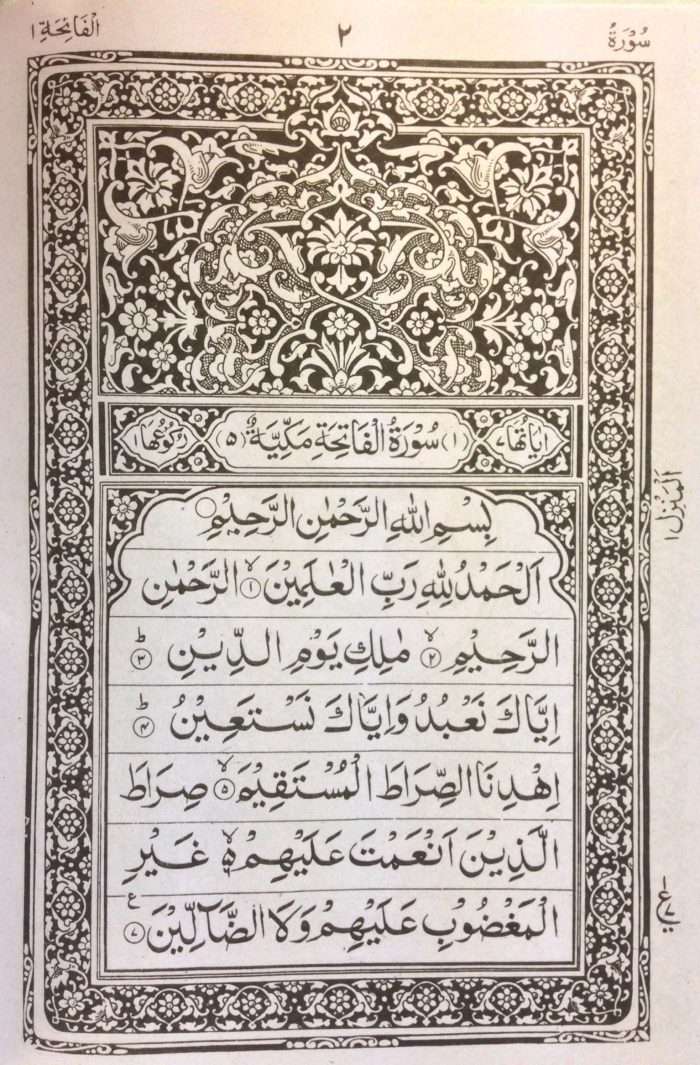 سُوْرَةُ
٢
الْفَاتِحَةِ ١
اٰيَاتُهَا ٧
(١) سُوْرَةُ الْفَاتِحَةِ مَكِّيَّةٌ (٥)
رُكُوْعُهَا ١
بِسْمِ اللّٰهِ الرَّحْمٰنِ الرَّحِيْمِ
اَلْحَمْدُ لِلّٰهِ رَبِّ الْعٰلَمِيْنَ ۙ﴿١﴾ الرَّحْمٰنِ
الرَّحِيْمِ ۙ﴿٢﴾ مٰلِكِ يَوْمِ الدِّيْنِ ؕ﴿٣﴾
اِيَّاكَ نَعْبُدُ وَاِيَّاكَ نَسْتَعِيْنُ ؕ﴿٤﴾
اِهْدِنَا الصِّرَاطَ الْمُسْتَقِيْمَ ۙ﴿٥﴾ صِرَاطَ
الَّذِيْنَ اَنْعَمْتَ عَلَيْهِمْ ۙ۬ غَيْرِ
الْمَغْضُوْبِ عَلَيْهِمْ وَلَا الضَّآلِّيْنَ ﴿٧﴾ ع
اَلْمَنْزِل ١